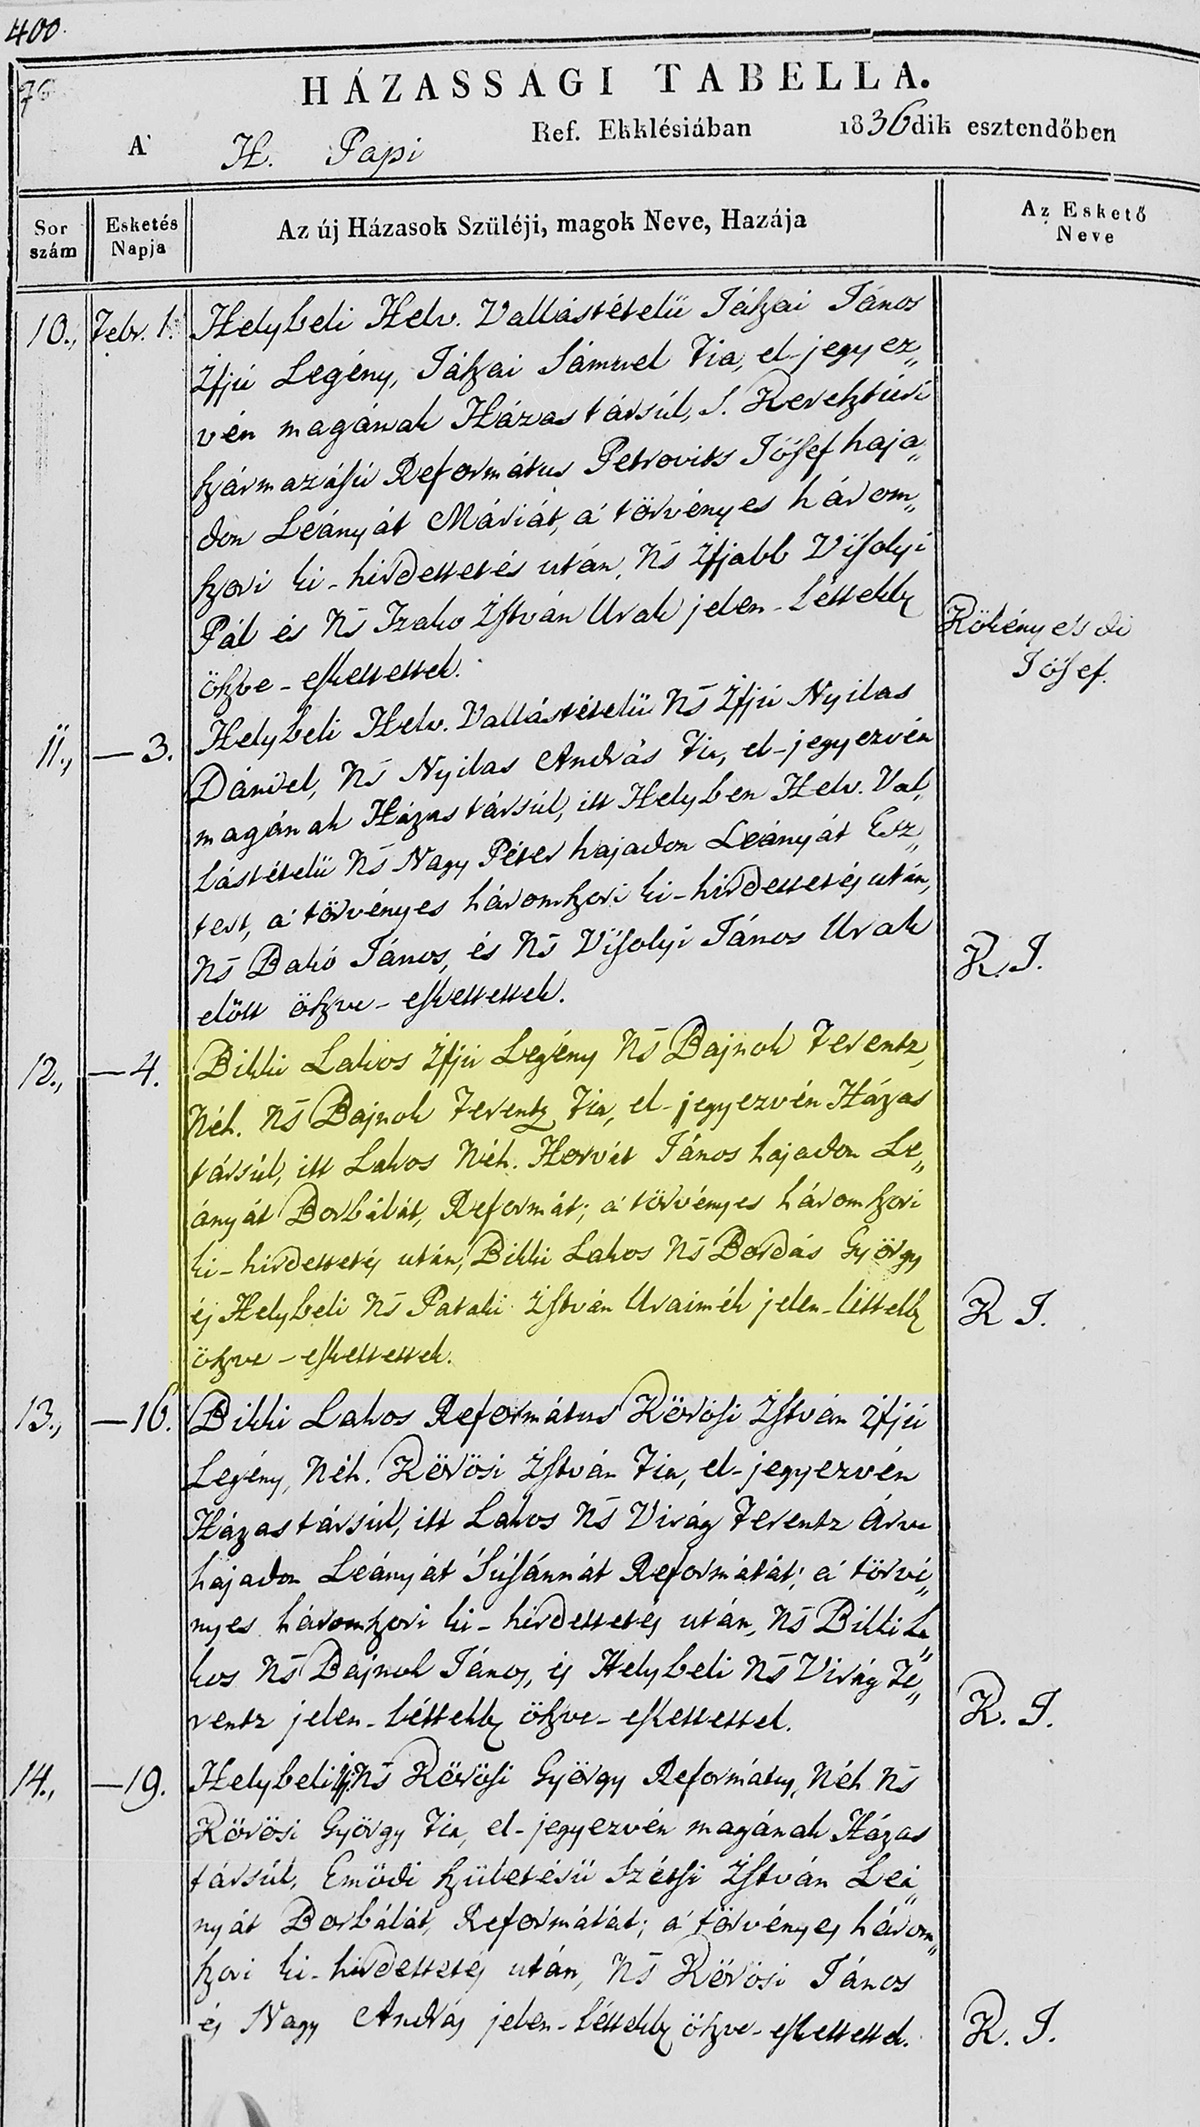 400.
76
HÁZASSÁGI TABELLA.
A' H. Papi Ref. Ekklésiában 1836dik esztendőben
Sor szám
Esketés Napja
Az új Házasok Szüléji, magok Neve, Hazája
Az Eskető Neve
10., Febr. 1. Helybeli Helv. Vallástételü Jászai János
Ifjú Legény, Jászai Sámuel Fia, el-jegyez„
vén magának Házastársúl, S. Keresztúri
származású Református Petrovits Jósef haja„
don Leányát Máriát, a' törvényes három„
szori ki-hirdettetés után, Ns Ifjabb Visolyi
Pál és Ns Izako István Urak jelen-léttekb.
öszve-eskettettek.
Kökényesdi
Jósef.
11., — 3. Helybeli Helv. Vallástételü Ns Ifjú Nyilas
Dániel, Ns Nyilas András Fia, el-jegyezvén
magának Házastársúl, itt Helyben Helv. Val„
lástételü Ns Nagy Péter hajadon Leányát Esz„
tert, a' törvényes háromszori ki-hirdettetés után,
Ns Bakó János, és Ns Visolyi János Urak
előtt öszve-eskettettek.
K. J.
12., — 4. Bikki Lakos Ifjú Legény Ns Bajnok Ferentz,
Néh. Ns Bajnok Ferentz Fia, el-jegyezvén Házas
társúl, itt Lakos Néh. Horvát János hajadon Le„
ányát Borbálát, Reformát; a' törvényes háromszori
ki-hirdettetés után, Bikki Lakos Ns Bordás György
és Helybeli Ns Pataki István Uraimék jelen-léttekb.
öszve-eskettettek.
K. J.
13., — 16. Bikki Lakos Református Kőrösi István Ifjú
Legény, Néh. Kőrösi István Fia, el-jegyezvén
Házastársúl, itt Lakos Ns Virág Ferentz Árva
hajadon Leányát Súsánnát Reformátát; a' törvé„
nyes háromszori ki-hirdettetés után, Ns Bikki La„
kos Ns Bajnok János, és Helybeli Ns Virág Fe„
rentz jelen-léttekb. öszve-eskettettek.
K. J.
14., — 19. Helybeli Ifj. Ns Kőrösi György Református, Néh. Ns
Kőrösi György Fia, el-jegyezvén magának Házas
társúl, Emődi születésü Szétsi István Leá„
nyát Borbálát, Reformátát; a' törvényes három„
szori ki-hirdettetés után, Ns Kőrösi János
és Nagy András jelen-léttekb. öszve-eskettettek.
K. J.